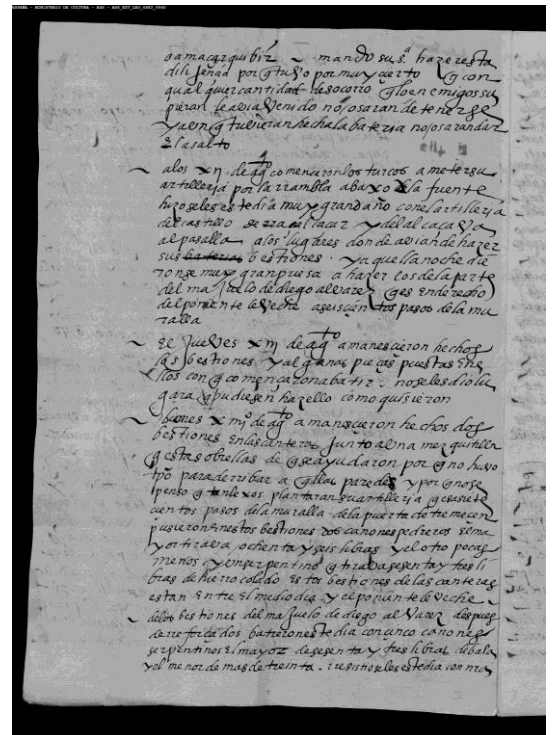 ESPAÑA - MINISTERIO DE CULTURA - AGS
a mazarquibir ~ mando su s.ª hazer esta
dilijençia por q tubo por muy cierto q con
qualquier cantidad de socorro q los enemigos su
pieran le avia venido no osaran detenerse
y avn q tuvieran hecha la bateria no osaran dar
el asalto
~ a los xij de ag.to començaron los turcos a meter su
artilleria por la rrambla abaxo de la fuente
hizoseles este dia muy gran daño con el artilleria
del castillo de rraçalcaçar y del alcaçava
al pasalla a los lugares donde avian de hazer
sus baterias bestiones. y aquella noche die
ronse muy gran priesa a hazer los de la parte
del maçuelo de diego alvarez q es en derecho
del poniente leveche a seiscientos pasos de la mu
ralla
~ El jueves xiij de ag.to amanescieron hechos
las bestiones y algunas pieças puestas en e
llos con q començaron a batir. no se les dio lu
gar a q pudiesen hazello como quisieron
~ viernes xiiij.º de ag.to amanescieron hechos dos
bestiones en las canteras junto a una mezquitilla
q estas obrellas de q se ayudaron por q no huvo
tpo para derribar aqllas paredes y por q no se
penso q tan lexos plantaran su artilleria q es a siete
cientos pasos de la muralla de la puerta de tremecen
pusieron en estos bestiones dos cañones pedreros el ma
yor tirava ochenta y seis libras y el otro pocas
menos y un serpentino q tirava sesenta y tres li
bras de hierro colado estos bestiones de las canteras
estan entre el mediodia y el poniente leveche
~ de los bestiones del maçuelo de diego alvarez despues
de reforçados batieron este dia con cinco cañones
serpentinos el mayor de sesenta y tres libras de bala
y el menor de mas de treinta. resistioseles este dia con mu